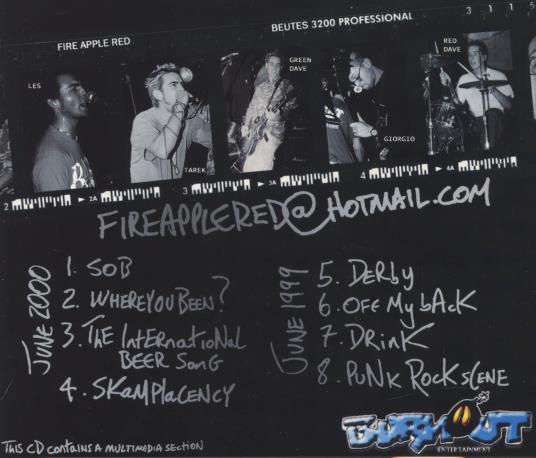 BEUTES 3200 PROFESSIONAL
3 1 1 5
FIRE APPLE RED
LES
TAREK
GREEN
DAVE
GIORGIO
RED
DAVE
2 2A 3 3A 4 4A 5
FIREAPPLERED@HOTMAIL.COM
JUNE 2000
1. SOB
2. WHERE YOU BEEN?
3. THE INTERNATIONAL
BEER SONG
4. SKAMPLACENCY
JUNE 1999
5. DERBY
6. OFF MY BACK
7. DRINK
8. PUNK ROCK SCENE
THIS CD CONTAINS A MULTIMEDIA SECTION
BURNOUT
ENTERTAINMENT